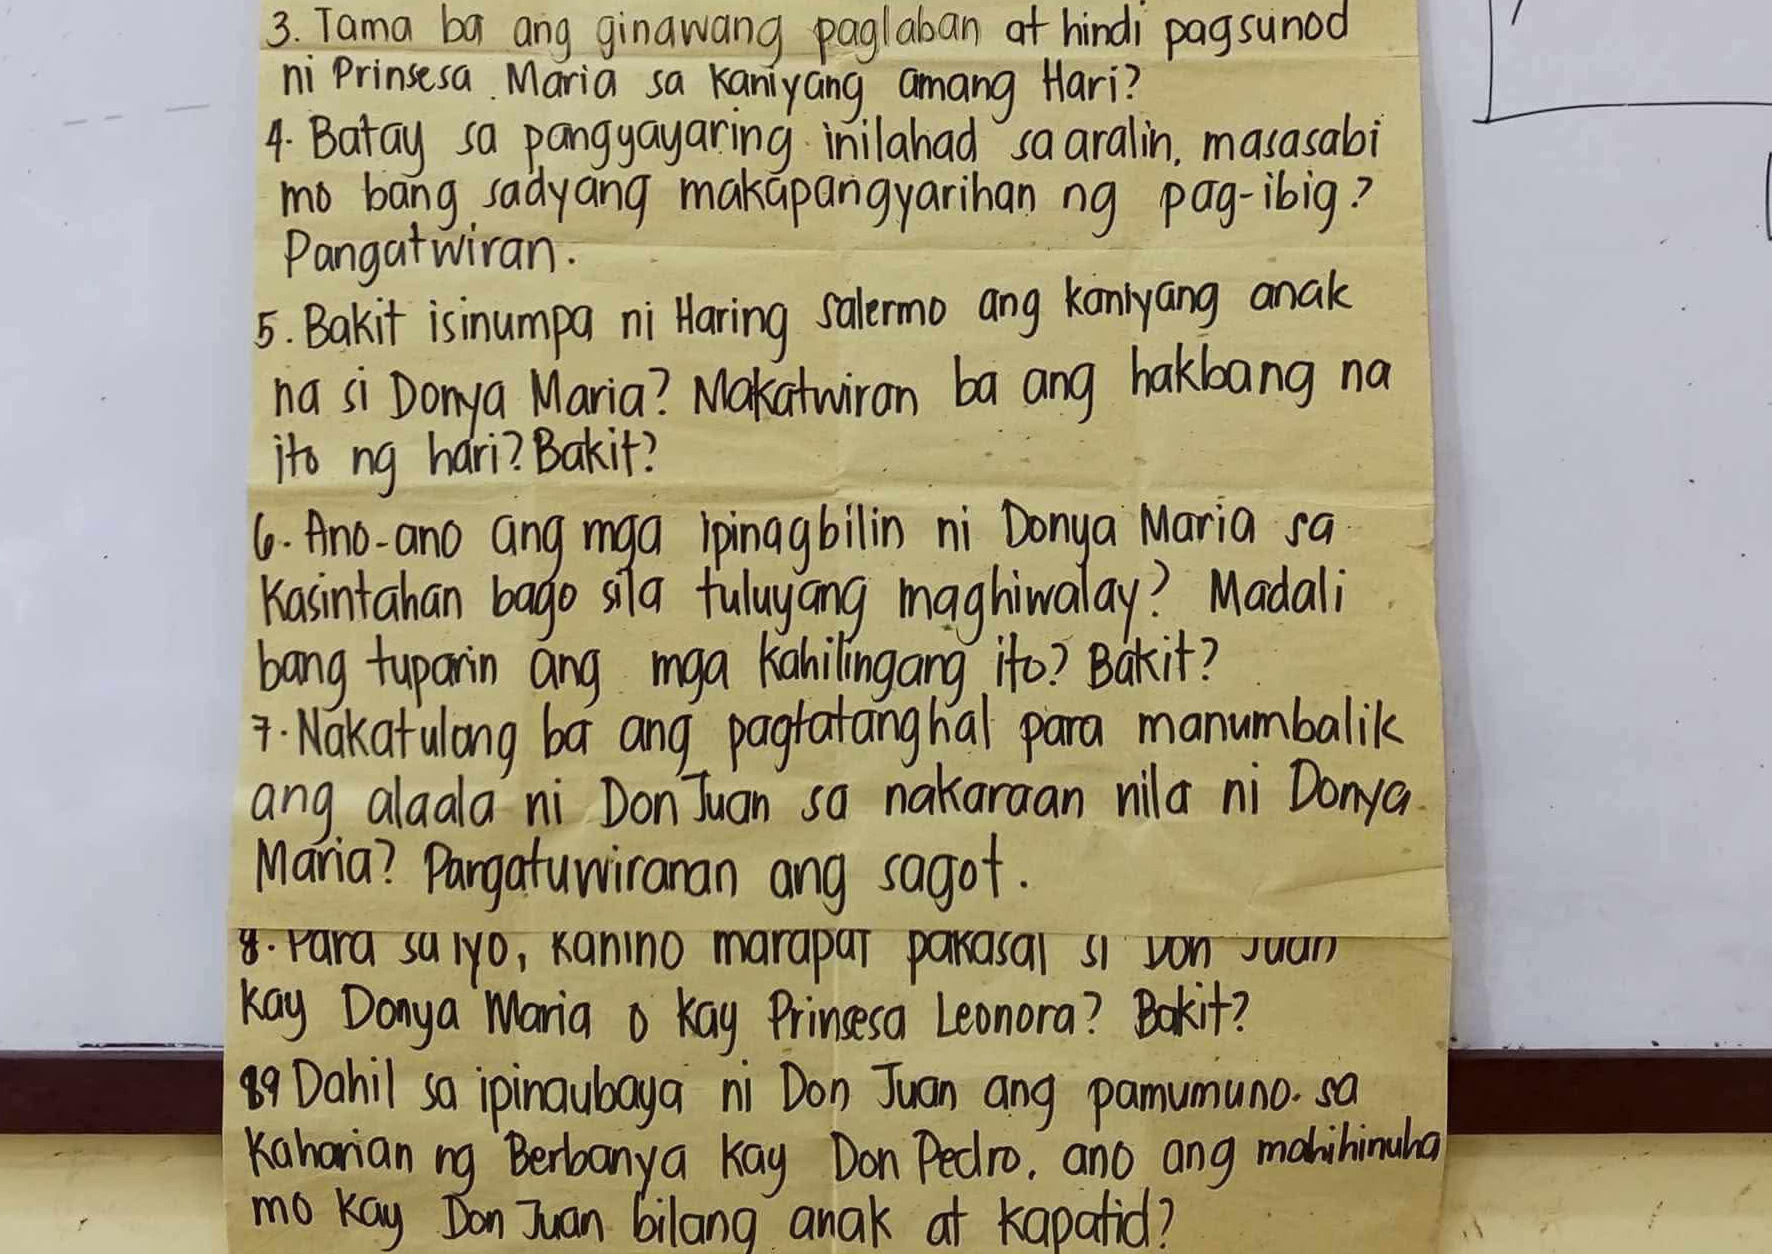 3. Tama ba ang ginawang paglaban at hindi pagsunod
ni Prinsesa Maria sa kaniyang amang Hari?
4. Batay sa pangyayaring inilahad sa aralin, masasabi
mo bang sadyang makapangyarihan ng pag-ibig?
Pangatwiran.
5. Bakit isinumpa ni Haring Salermo ang kaniyang anak
na si Donya Maria? Makatwiran ba ang hakbang na
ito ng hari? Bakit?
6. Ano-ano ang mga ipinagbilin ni Donya Maria sa
kasintahan bago sila tuluyang maghiwalay? Madali
bang tuparin ang mga kahilingang ito? Bakit?
7. Nakatulong ba ang pagtatanghal para manumbalik
ang alaala ni Don Juan sa nakaraan nila ni Donya
Maria? Pangatuwiranan ang sagot.
8. Para sa iyo, kanino marapat pakasal si Don Juan
kay Donya Maria o kay Prinsesa Leonora? Bakit?
89 Dahil sa ipinaubaya ni Don Juan ang pamumuno sa
kaharian ng Berbanya kay Don Pedro, ano ang mahihinuha
mo kay Don Juan bilang anak at kapatid?